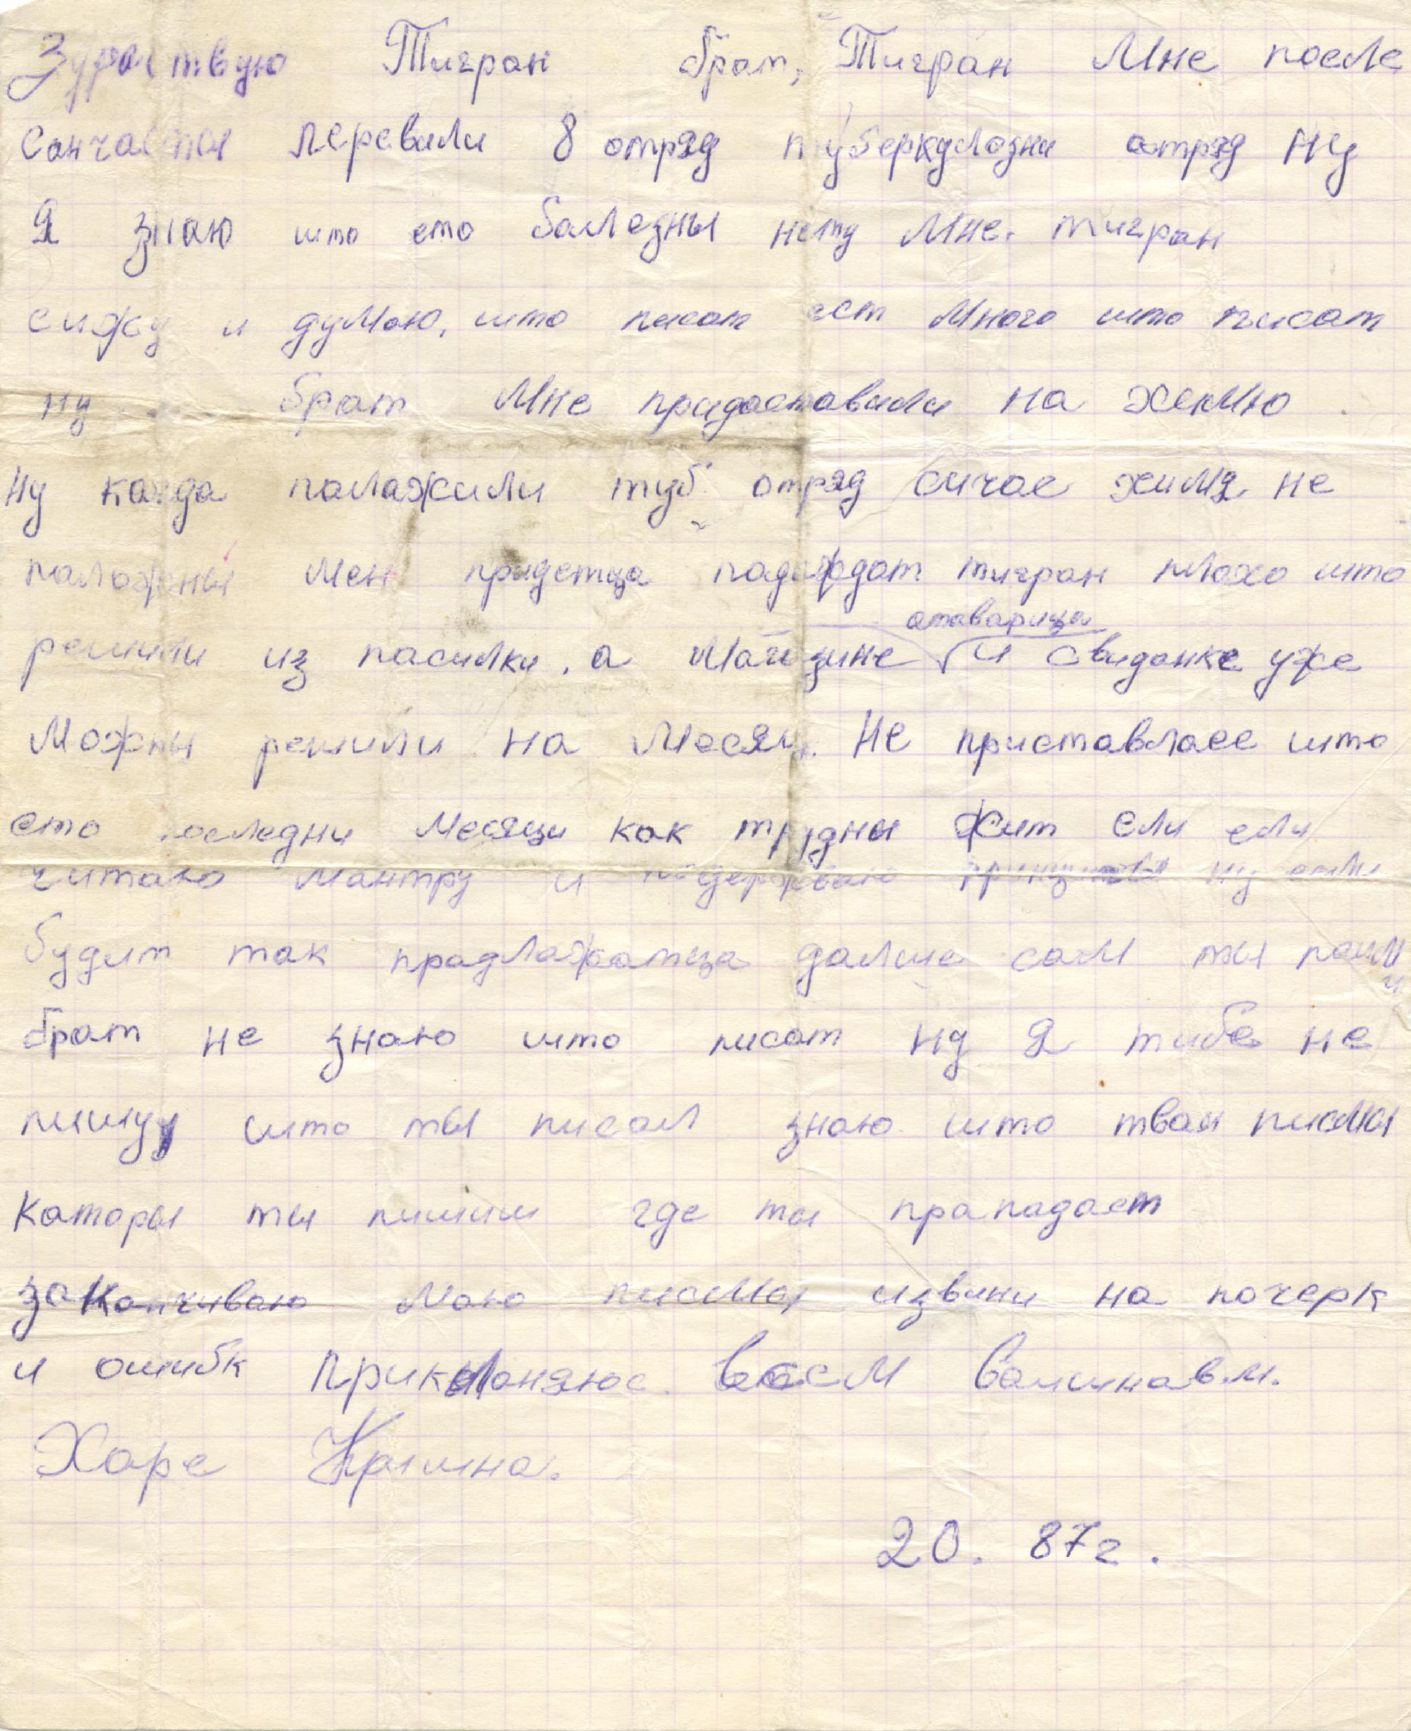 Здраствую Тигран брат, Тигран Мне после
санчасты перевили 8 отряд туберкулозни отряд ну
Я знаю што ето балезны нету мне. тигран
сижу и думаю, што писат ест много што писат
ну брат мне придаставили на химю
ну когда палажили туб отряд сичас химя не
паложны мен придетца падаждат тигран плохо што
решили из пасилки, а магизине
атаварица
и свиданке уже
можны решили на месяц. Не приставлаее што
ето последни месяци как трудны жит ели ели
читаю мантру и ну если
будит так прадлажатца далше сам ты пойми
брат не знаю што писат ну я тибе не
пишу што ты писал знаю што твои писмы
каторы ты пишиш где то прападает
заканчиваю мою писмы извини на почерк
и ошибк прикланяюс всем Ваишнавм.
Харе Кришна.
20. 87г.